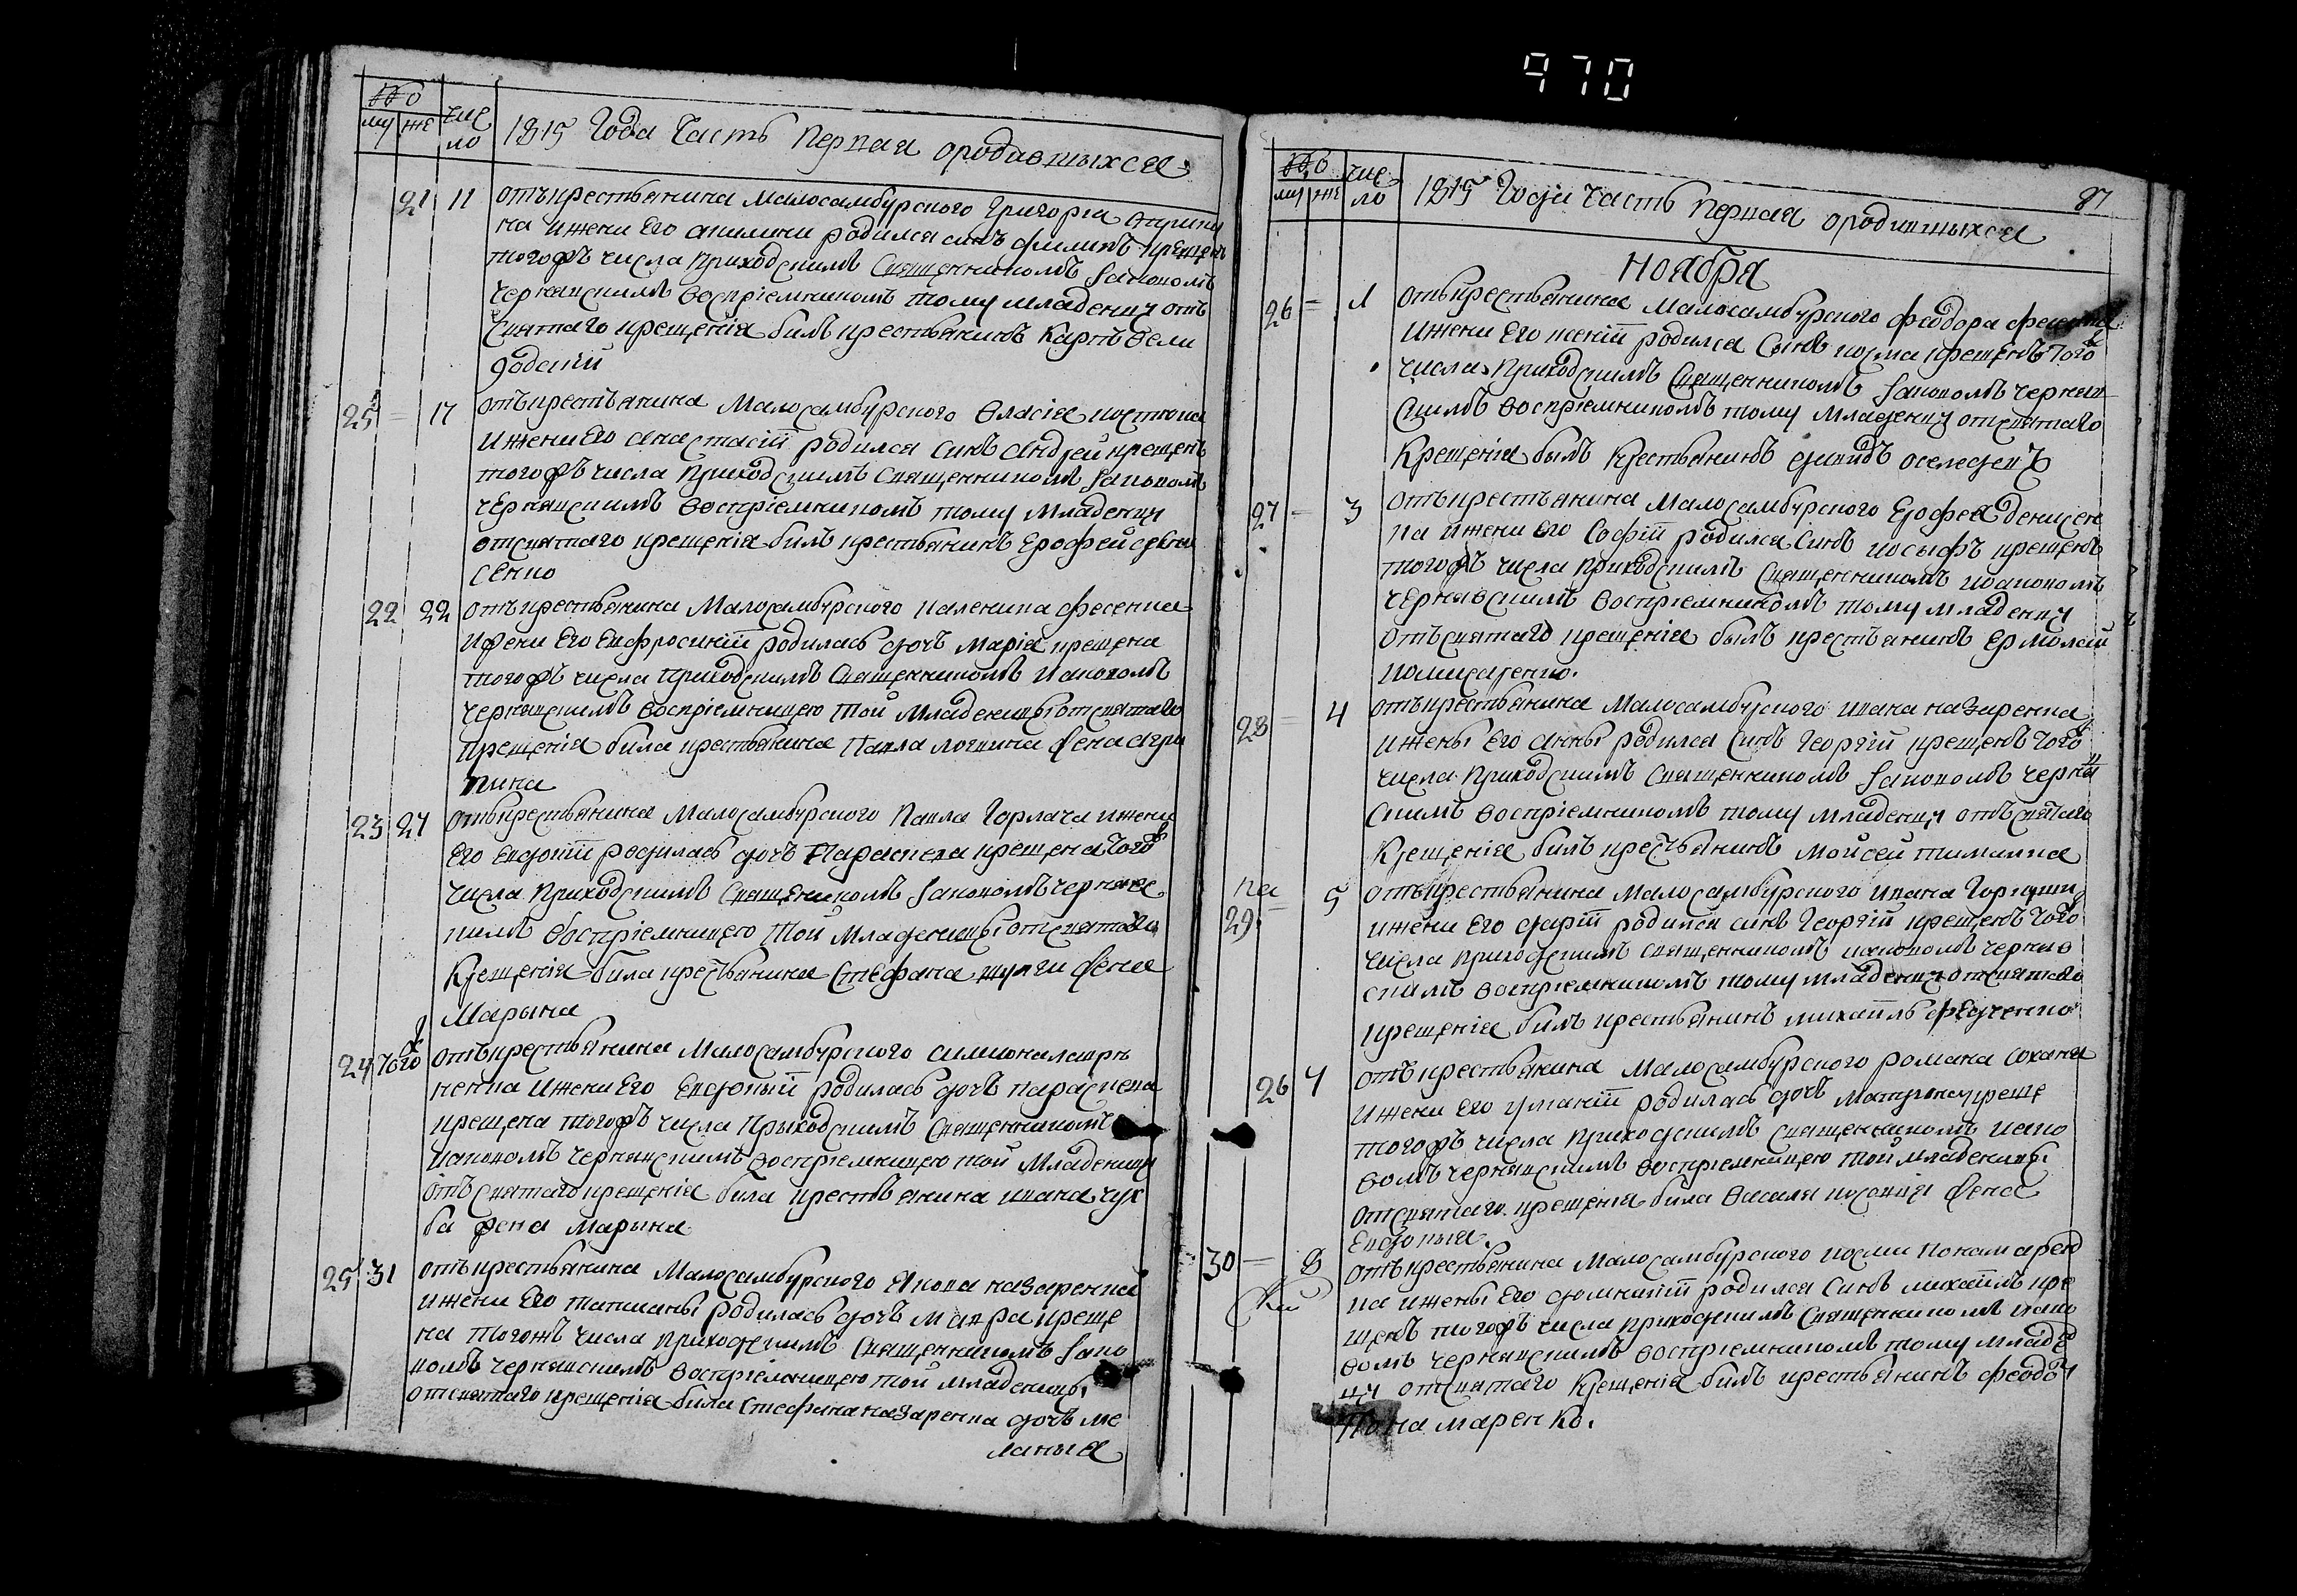 970
№ б
му же чис
ло
1815 Года Часть Первая ородившыхся
21 11 отъ крестьянина Малосамбурского Григорїя
на ижени Его родился синъ Филипъ крещен
тогожъ числа Приходскимъ Священникомъ Іаковомъ
Чернявскимъ воспрїемникомъ тому младенцу отъ
святаго крещенїя билъ крестьянинъ Карпъ вели
годский
25 17 отъ крестьянина Малосамбурского Власїя
ижени Его анастасїи родился синъ Андрей крещенъ
тогожъ числа Приходскимъ Священникомъ Іаковомъ
чернявскимъ воспрїемникомъ тому Младенцу
отсвятаго крещенїя билъ крестьянинъ Ерофей
сенко
22 22 отъ крестьянина Малосамбурского каленика фесенка
ижени Его Евфросинїи родилась дочь Марїя крещена
тогожъ числа приходскимъ Священникомъ Иаковомъ
Чернявскимъ воспрїемницею той Младеници отсвятаго
крещенїя била крестьянина Павла логвина жена агри
пина
23 27 отъ крестьянина Малосамбурского Павла Горлача ижени
Его Евдокїи родилась дочь Параскева крещена того ж
числа Приходскимъ Священикомъ Іаковомъ чернявс
кимъ воспрїемницею той Младеници отсвятаго
Крещенїя била крестьянина Стефана жена
Марина
24 того ж отъ крестьянина Малосамбурского симиона
ненка ижени Его Евдокыи родилась дочь параскева
крещена тогожъ числа Прыходскимъ Священникомъ
Іаковомъ Чернявскимъ воспрїемницею той Младеници
отъ святаго крещенїя била крестьянина ивана чух
ба жена Марина
25 31 отъ крестьянина Малосамбурского Якова назаренка
ижени Его татианы родилась дочь Мавра креще
на тогожъ числа приходскимъ Священникомъ Іако
вомъ чернявскимъ воспрїемницею той младеници
отсвятаго крещенїя била Стефана назаренка дочь ме
ланыя
№ б
му же чис
ло
1815 Года Часть Первая ородившыхся
87
Ноября
26 1 отъ крестьянина Малосамбурского феодора
ижени Его ксенїи родился Сынъ козма крещенъ того ж
числа Приходскимъ Священникомъ Іаковомъ Черняв
скимъ воспрїемникомъ тому Младенцу отсвятаго
Крещенїя былъ Крестьянинъ оселедецъ
27 3 отъ крестьянина Малосамбурского Ерофея денисен
ка ижени его Софїи родился Синъ иосыфъ крещенъ
тогожъ числа приходскимъ Священникомъ иоаковомъ
чернявскимъ воспрїемникомъ тому младенцу
отъ святаго крещенїя былъ крестьянинъ ермолай

28 4 отъ крестьянина Малосамбурского ивана назаренка
ижены Его анны родился Синъ Георгїй крещенъ того ж
числа Приходскимъ Священникомъ Іаковомъ черняв
скимъ воспрїемникомъ тому младенцу отъ святаго
Крещенїя билъ крестьянинъ Мойсей
29 5 отъ крестьянина Малосамбурского ивана
ижени Его дарїи родился синъ Георгїй крещенъ того ж
числа приходскимъ священникомъ иаковомъ черняв
скимъ воспрїемникомъ тому младенцу отсвятаго
крещенїя билъ крестьянинъ михаилъ федченко
26 7 отъ крестьянина Малосамбурского романа сохана
ижени Его улянїи родилась дочь Матрона креще
тогожъ числа приходскимъ священникомъ иако
вомъ чернявскимъ воспрїемницею той младеници
отсвятаго крещенїя била василя жена
Евдокыя.
30 8 отъ крестьянина Малосамбурского космы понамарен
ка ижены Его домникїи родился Синъ михаилъ кре
щенъ тогожъ числа приходскимъ Священникомъ иако
вомъ чернявскимъ воспрїемникомъ тому младе
нцу отсвятаго Крещенїя билъ крестьянинъ феодоръ
Понамаренко.